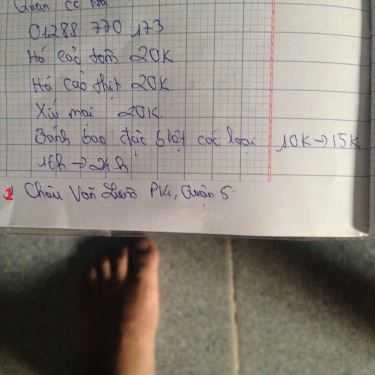 01288 770 173
Há cảo tôm 20K
Há cảo thịt 20K
Xíu mại 20K
Bánh bao đặc biệt các loại 10K → 15K
16h → 24h
Châu Văn Liêm P14, Quận 5